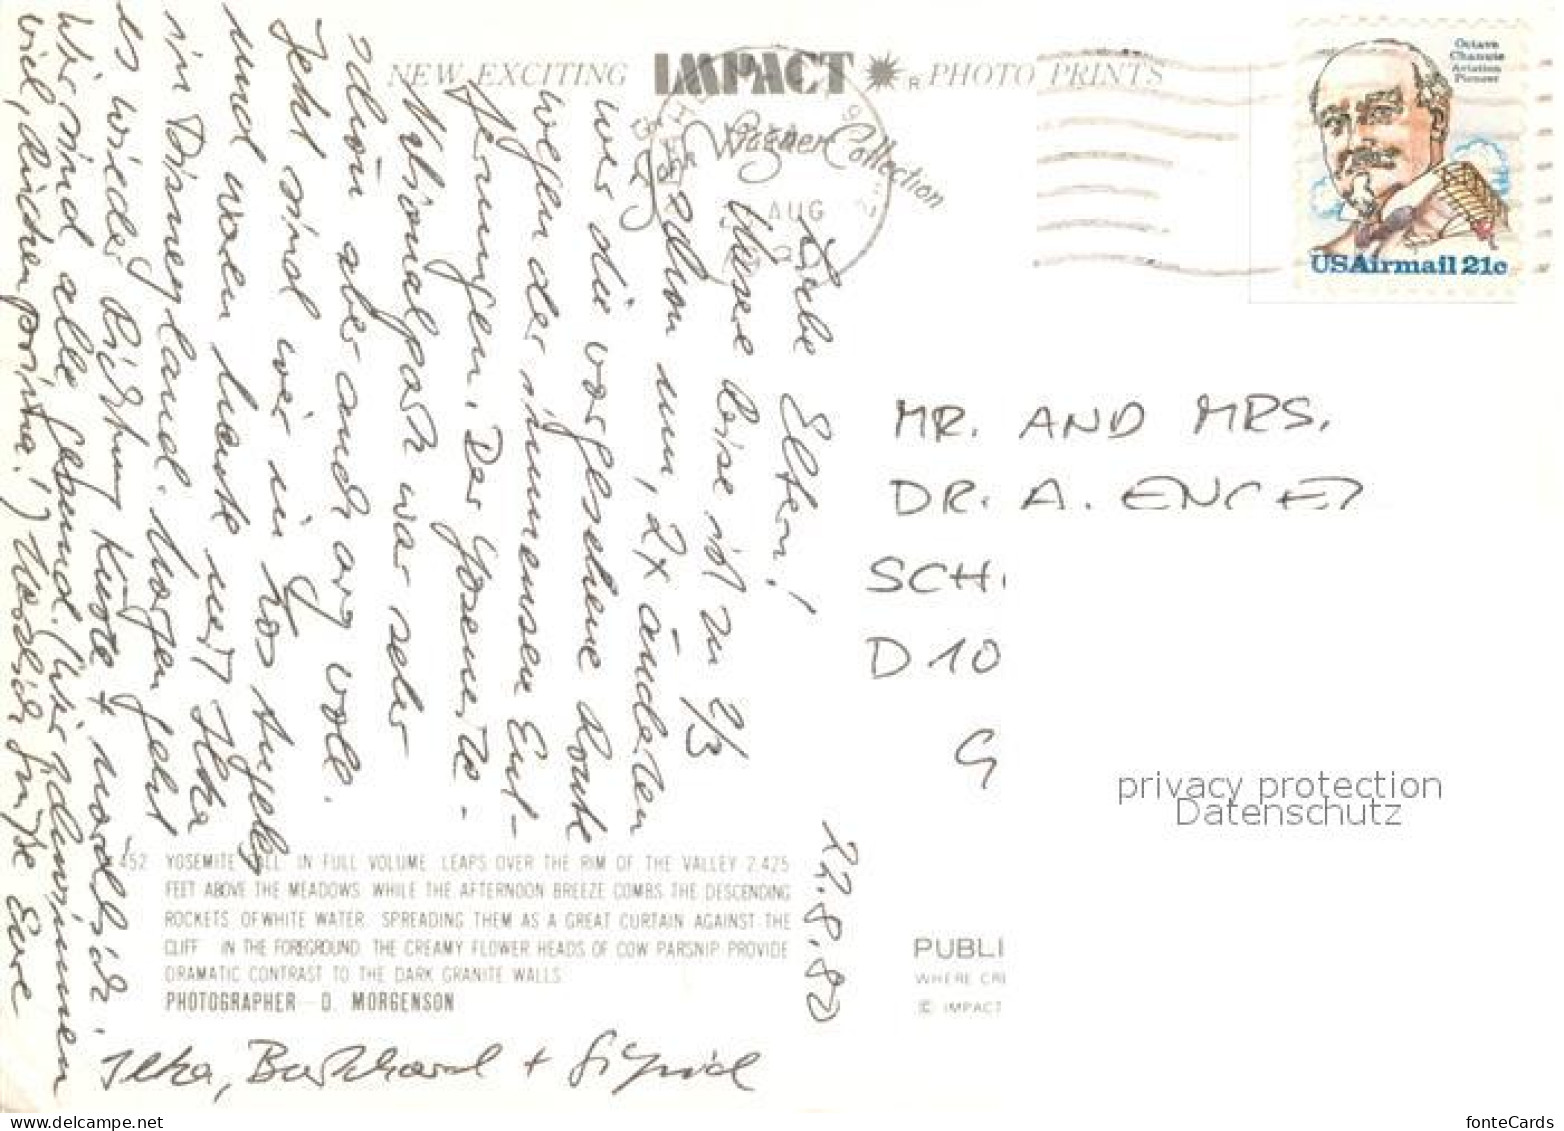 NEW EXCITING IMPACT R PHOTO PRINTS
Wagner Collection
AUG
Octave
Chanute
Aviation
Pioneer
USAirmail 21c
22.8.80
Liebe Eltern!
Unsere Reise ist zu 2/3
schon um, 2x änderten
wir die vorgesehene Route
wegen der immensen Ent-
fernungen. Der Yosemite-
Nationalpark war sehr
schön aber auch arg voll.
Jetzt sind wir in Los Angeles
und waren heute mit Ilka
in Disneyland. Morgen geht
es wieder Richtung Küste + nordwärts.
Wir sind alle gesund. (Wir schwimmen
viel, Rücken prima!) Herzliche Grüße Eure
Ilka, Burkhard + Sigrid
MR. AND MRS.
DR. A. ENGE
SCH
D 10
G
452 YOSEMITE FALL IN FULL VOLUME LEAPS OVER THE RIM OF THE VALLEY 2,425
FEET ABOVE THE MEADOWS WHILE THE AFTERNOON BREEZE COMBS THE DESCENDING
ROCKETS OF WHITE WATER, SPREADING THEM AS A GREAT CURTAIN AGAINST THE
CLIFF IN THE FOREGROUND THE CREAMY FLOWER HEADS OF COW PARSNIP PROVIDE
DRAMATIC CONTRAST TO THE DARK GRANITE WALLS
PHOTOGRAPHER - D. MORGENSON
PUBLI
WHERE CRE
© IMPACT
privacy protection
Datenschutz
delcampe.net
fonteCards